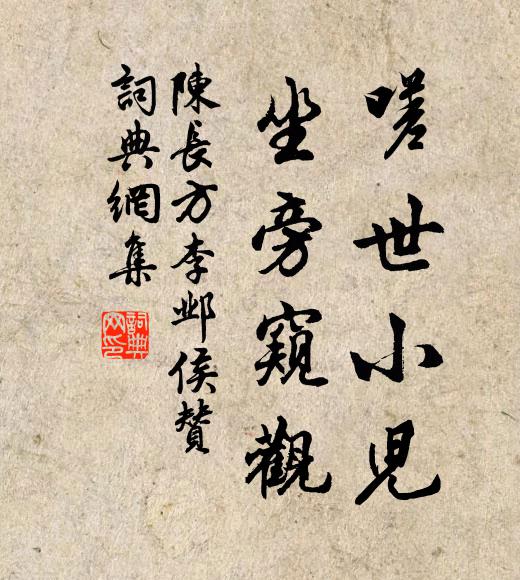 嗟世小児
坐旁窺觀
陳長方李邺侯贊
詞典網集
詞典
网印